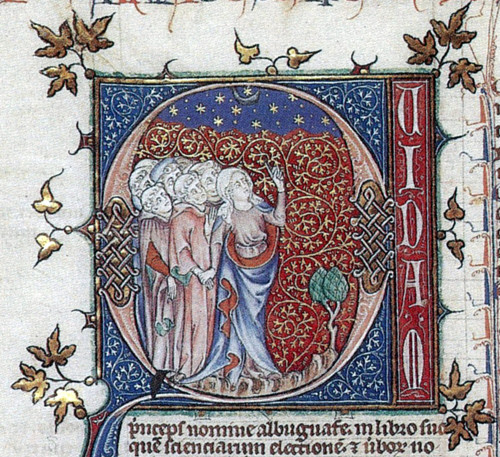 QUIDAM
pnceps nomine albuguafe. in libro suo
quē scienciarum electionē. ⁊ ubor no